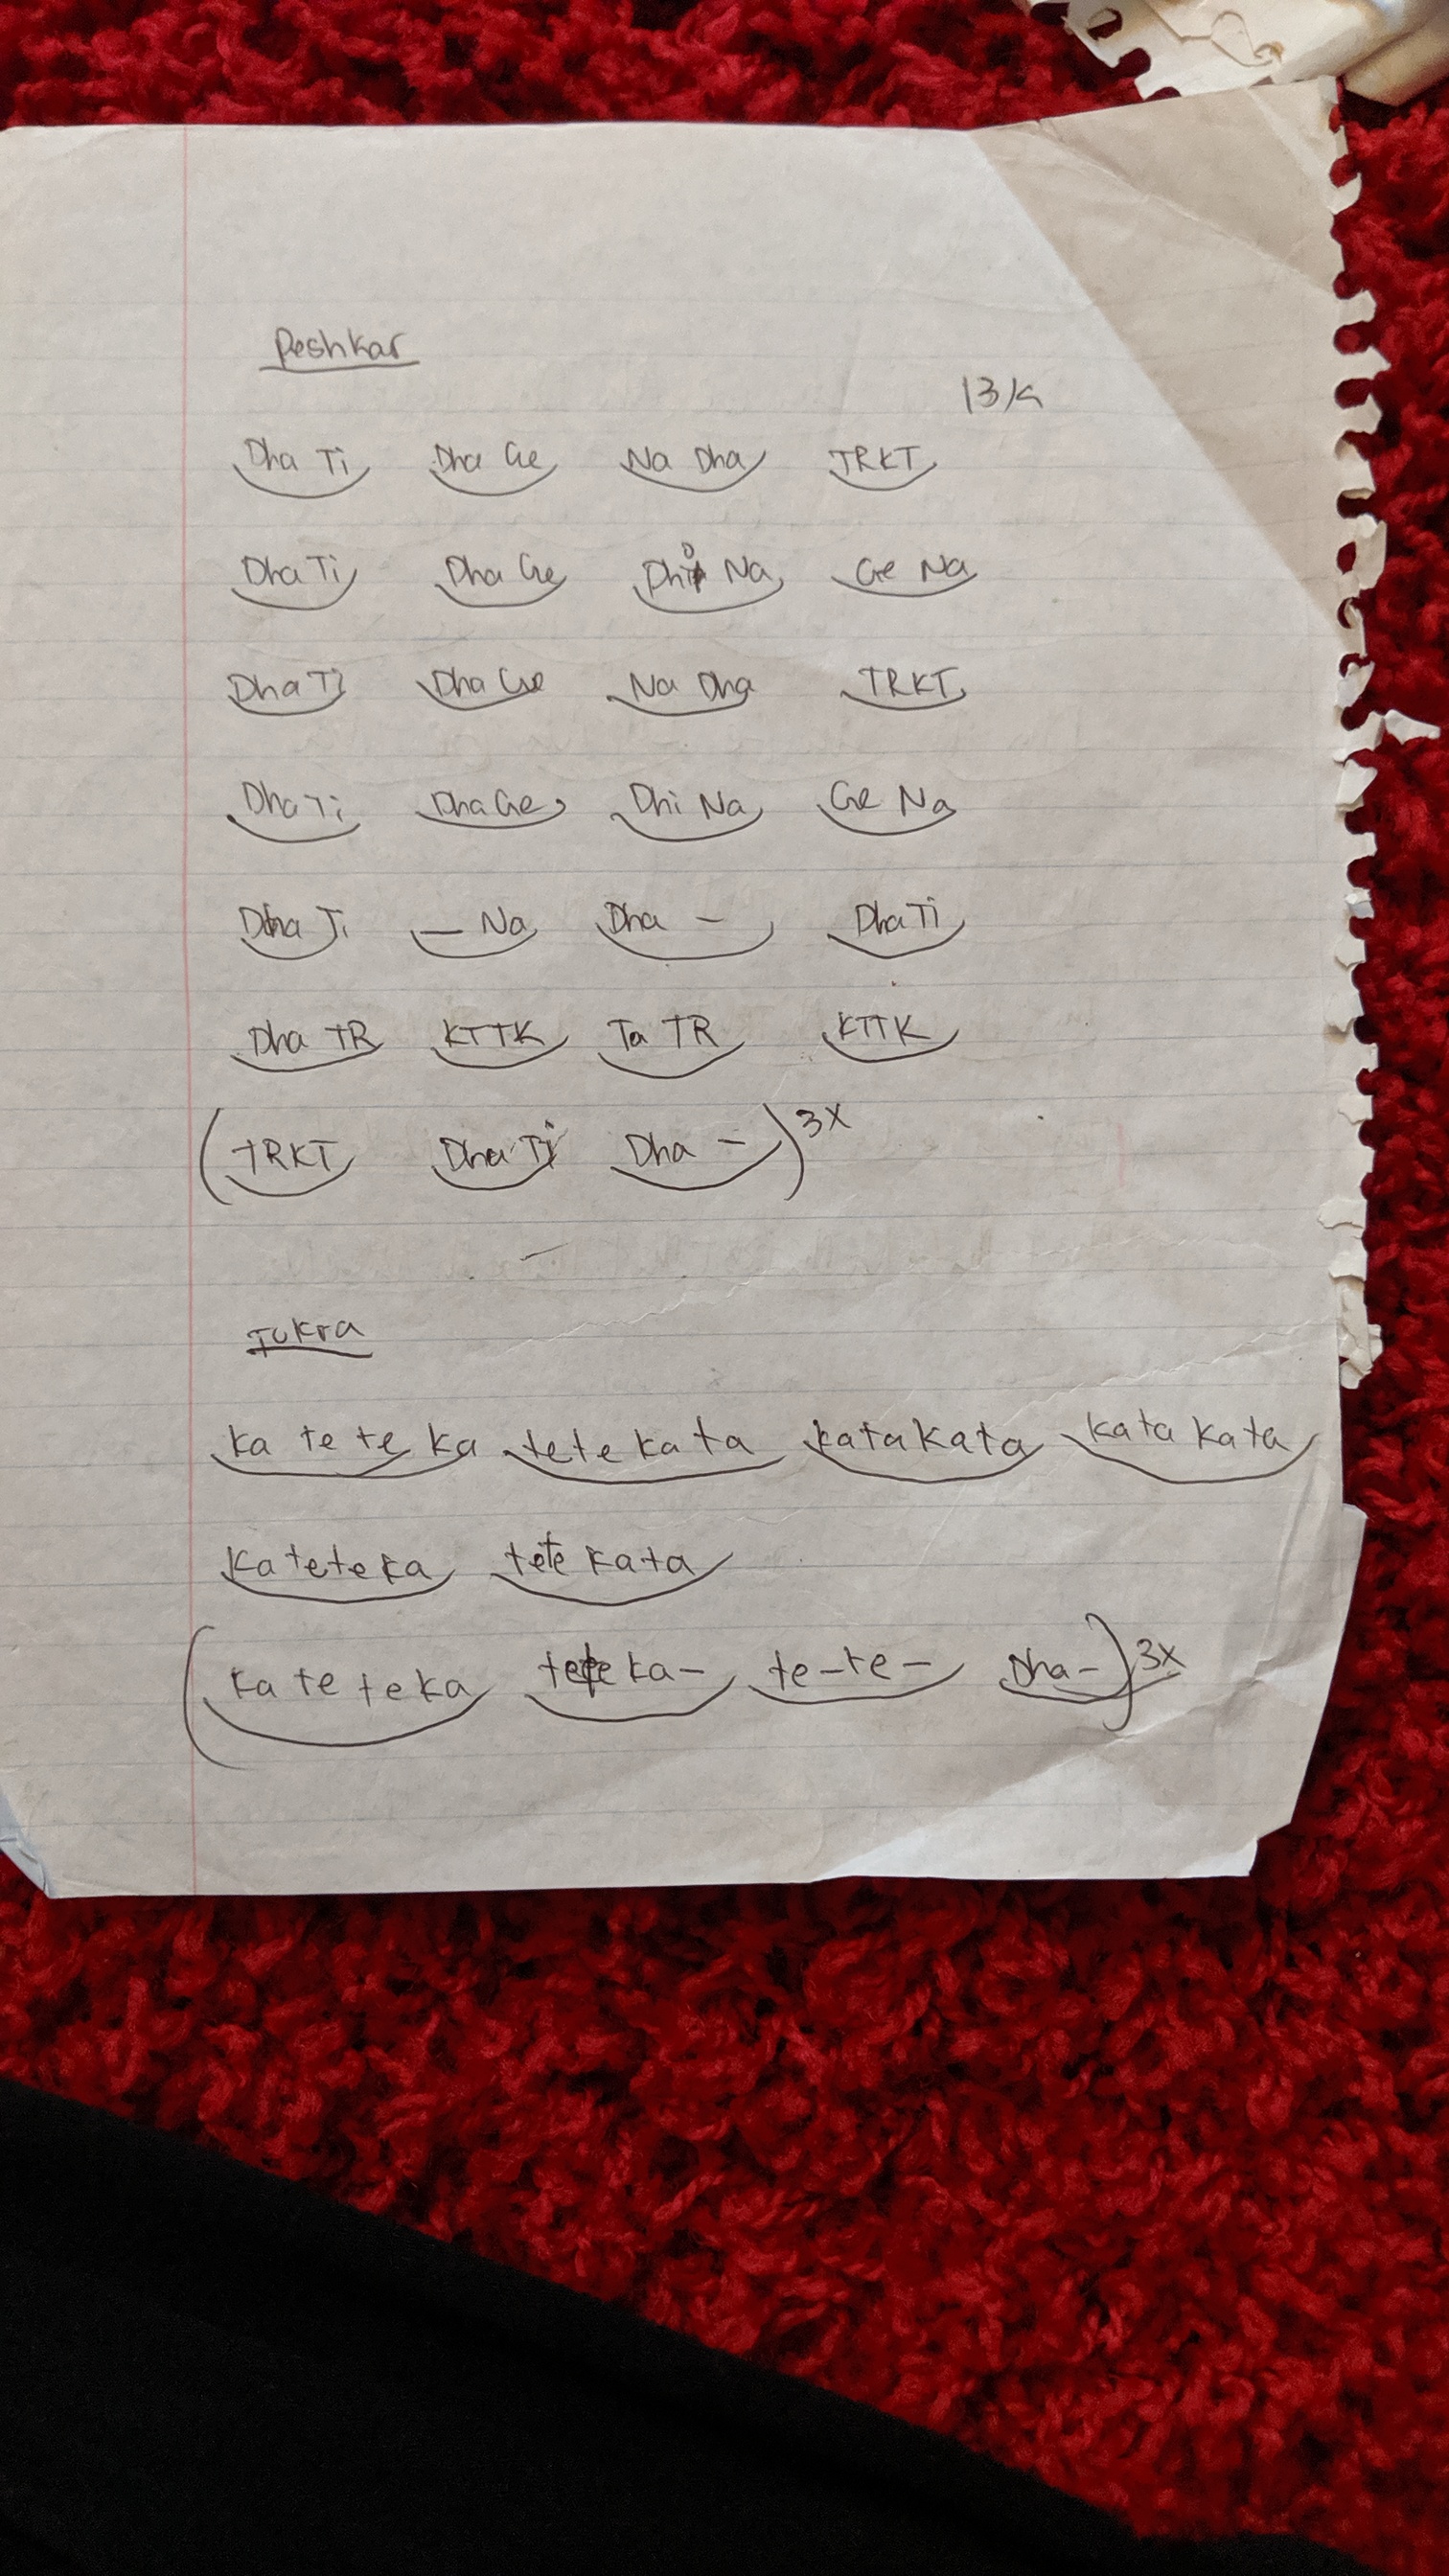 Peshkar
13/4
Dha Ti Dha Ge Na Dha TRKT
Dha Ti Dha Ge Dhi Na Ge Na
Dha Ti Dha Ge Na Dha TRKT
Dha Ti Dha Ge Dhi Na Ge Na
Dha Ti – Na Dha – Dha Ti
Dha TR KTTK Ta TR KTTK
(TRKT Dha Ti Dha –) 3X
Tukra
ka te te ka te te ka ta katakata kata kata
Kateteka tete kata
(ka te teka tete ka – te – te – Dha –) 3X